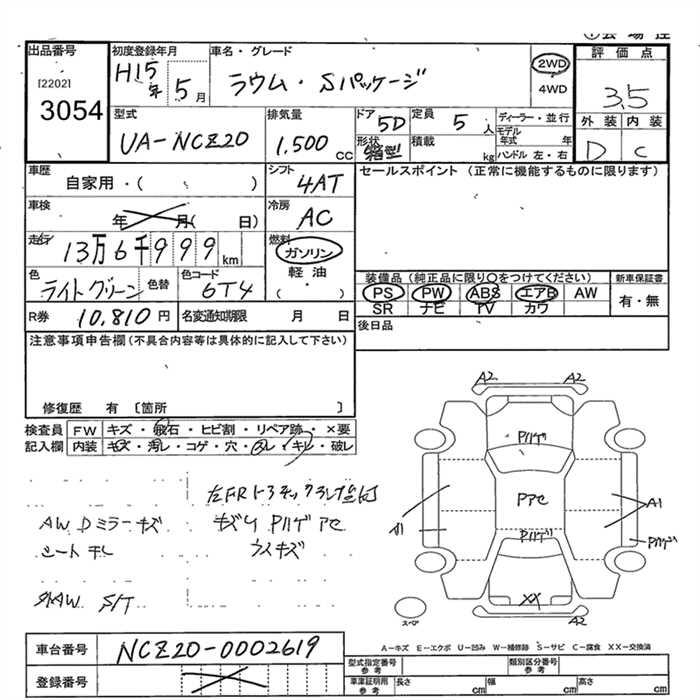 出品番号
[2202]
3054
初度登録年月
H15年 5月
車名・グレード
ラウム・Sパッケージ
2WD
4WD
評価点
3.5
外装 内装
D C
型式
UA-NCZ20
排気量
1.500 cc
ドア
5D
形状
箱型
定員
5 人
積載
kg
ディーラー・並行
モデル年式 年
ハンドル 左・右
車歴
自家用・( )
シフト
4AT
セールスポイント (正常に機能するものに限ります)
車検
年 月( 日)
冷房
AC
走行
13万6千999 km
燃料
ガソリン
軽油
( )
色
ライトグリーン
色替
色コード
6T4
装備品 (純正品に限り○をつけてください)
PS PW ABS エアB AW
SR ナビ TV カワ
新車保証書
有・無
R券
10,810 円
名変通知期限 月 日
後日品
注意事項申告欄(不具合内容等は具体的に記入して下さい)
修復歴 有 〔箇所 〕
検査員記入欄
FW キズ・飛石・ヒビ割・リペア跡・×要
内装 キズ・汚レ・コゲ・穴・スレ・キレ・破レ
AW Dミラーキズ
キズ P
ウスキズ
S/T
A2 A2
Pハゲ
Pアセ
A1 A1
Pハゲ
Pハゲ
XX
A2
スペア
A-キズ E-エクボ U-凹み W-補修跡 S-サビ C-腐食 XX-交換済
車台番号
NCZ20-0002619
登録番号
型式指定番号 参考
類別区分番号 参考
車庫証明用 参考
長さ cm
幅 cm
高さ cm